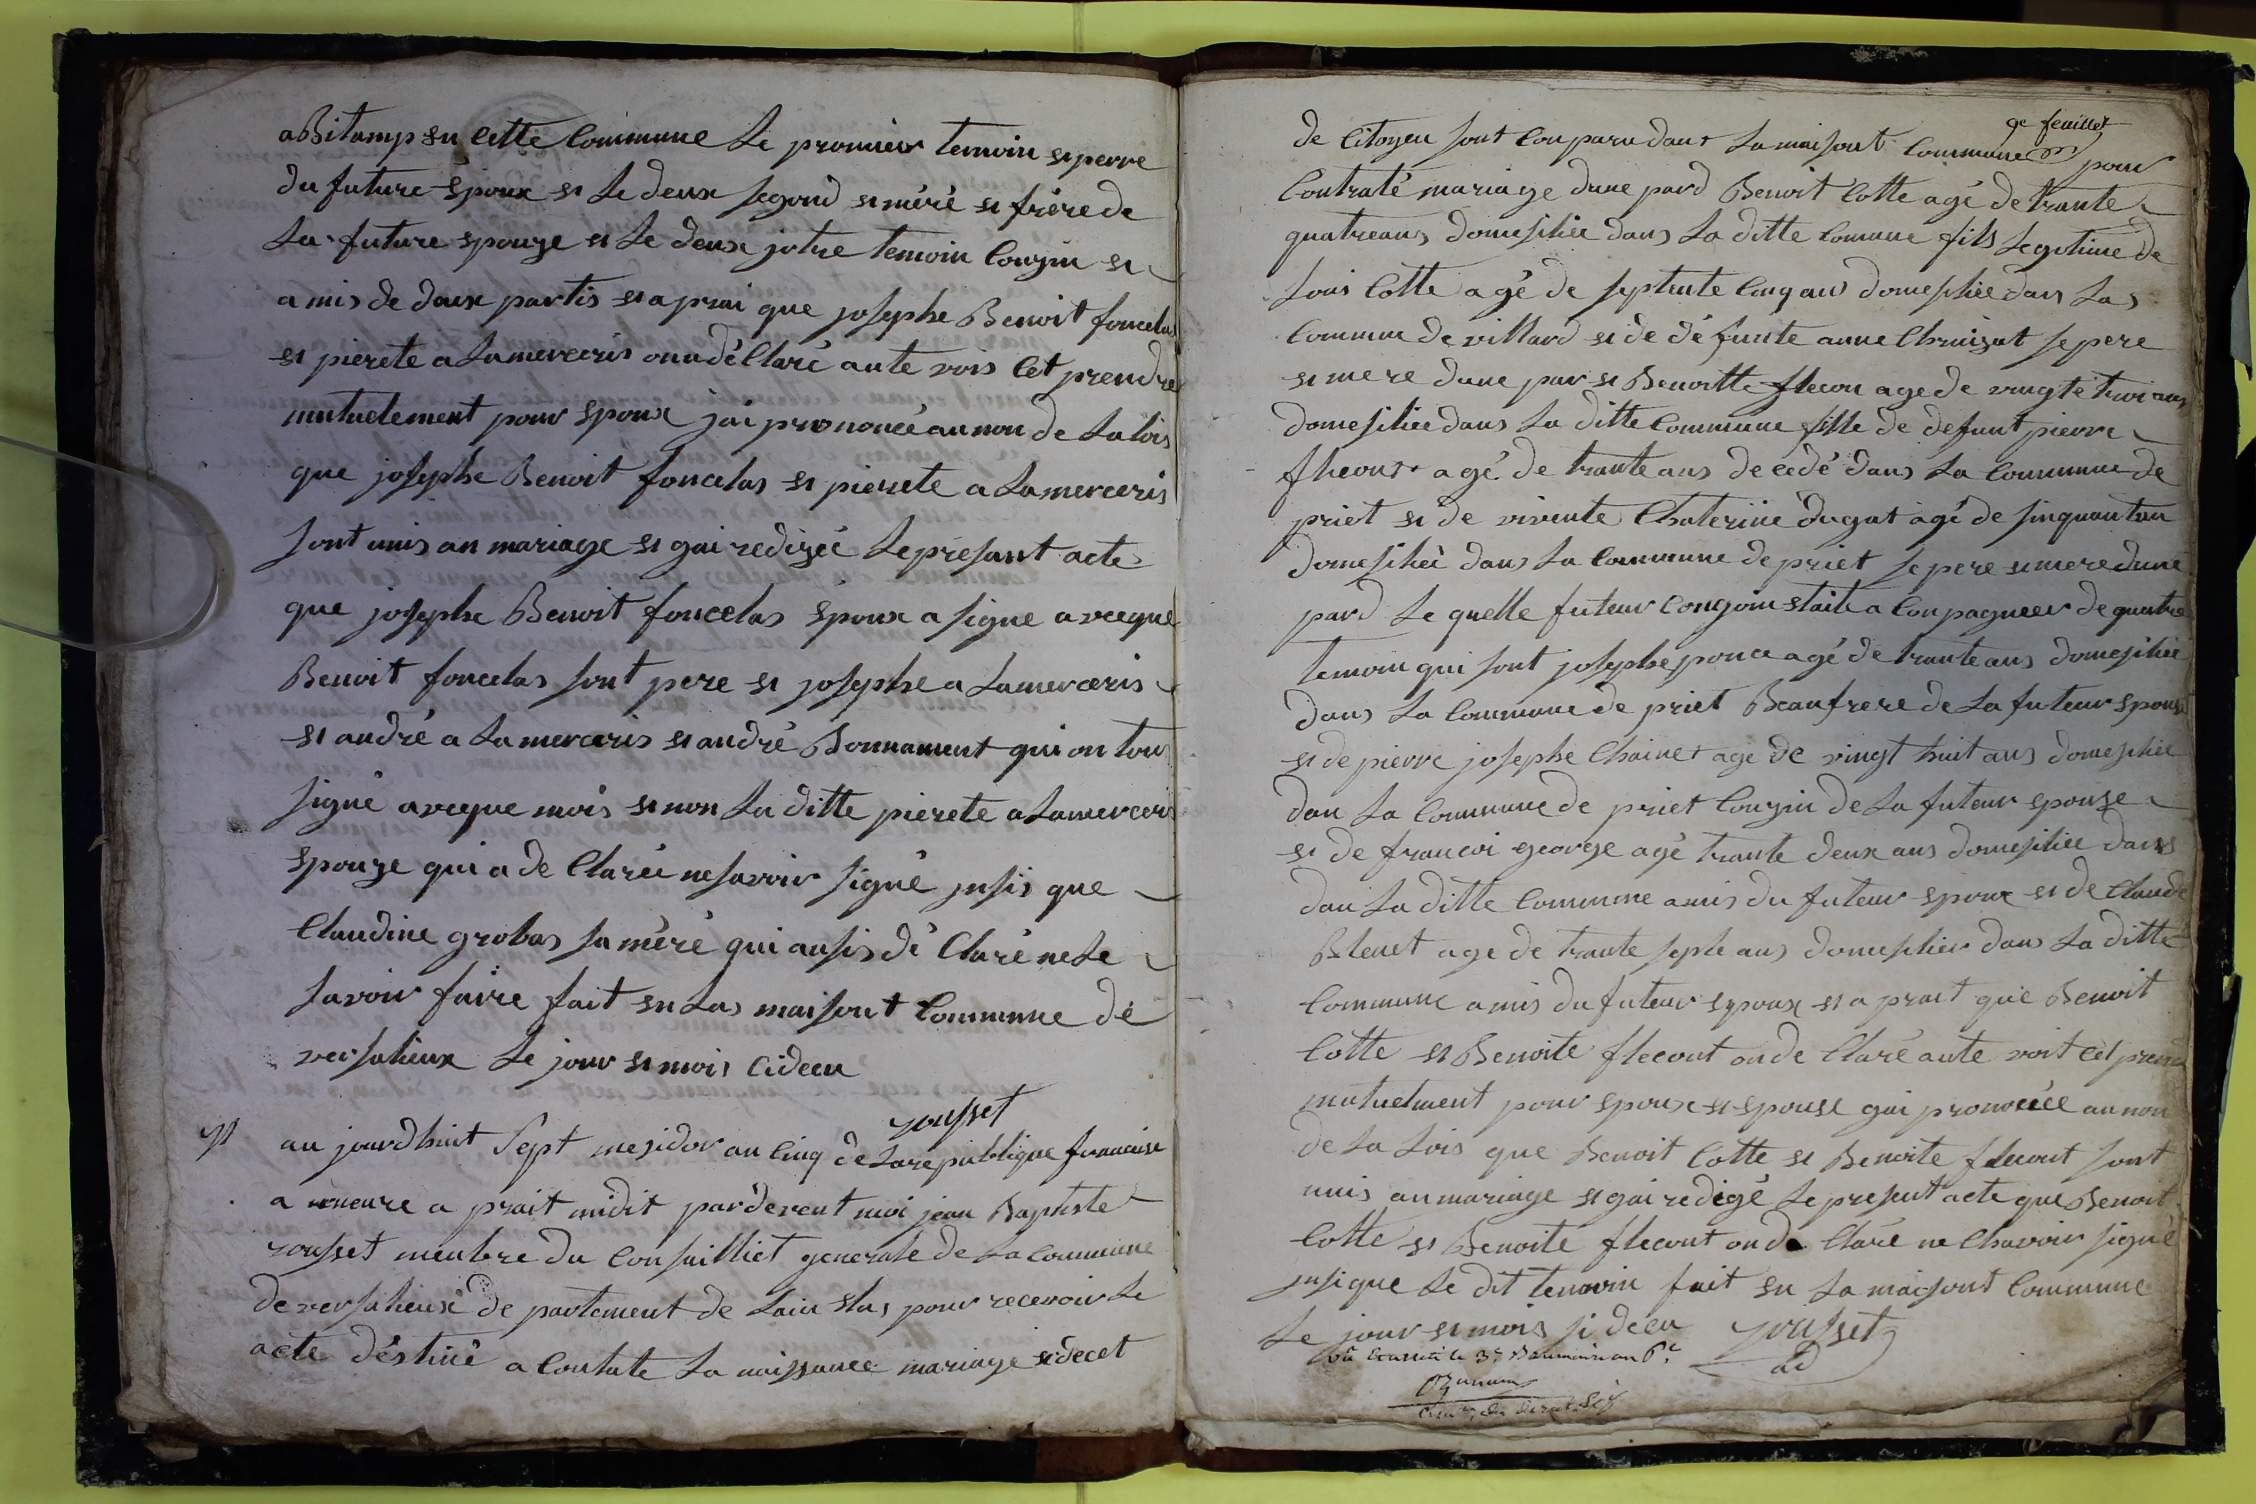 aBitamps en cette Commune Le promier temoin et perre
du future époux et Le deux segond et méré et frére de
La future epouze et Le deux jotre temoin Couzin et
amis de daux partis et aprai que josephe Benoit foncelas
et pierete a Lamerceris onndéClaré aute vois Cet prendre
mutuelement pour epoux jai prononcé au non de La lois
que josephe Benoit foncelas et pierete a Lamerceris
sont unis an mariage et gai redizée Le present acte
que josephe Benoit foncelas époux a signe aveque
Benoit foncelas sont pere et josephe a Lamerceris
et andré a Lamerceris et andré Bonnament qui on tous
signé aveque mois et non La ditte pierete a Lamerceris
epouze qui a de Clarée ne savoir signé insis que
Claudine grobas sa méré qui ausis dé Claré ne Le
savoir faire fait en Las maisont Commune dé
versalieux Le jour et mois Cideçu
rousset
au jourdhuit Sept mesidor an Cinq de La republique francaise
a uneure a prait midit parderent moi jean Baptiste
rousset meubre du Consailliet generale de La Commune
de versalieux de partement de Lain elus pour recevoir Le
acte déstiné a Contate La naissance mariage et decet
9e feuillet
de Citoyen sont Conparu dant La maisont Commune pour
Contraté mariage dune pard Benoit Cotte agé de trante
quatreans domesiliée dans La ditte Comune fils Legitime de
Louis Cotte agé de septente Cinq ans domesiliée dans Las
Commune de villard et de défunte anne Chruizat se pere
et mere dune par et Benoitte flecon age de vingte troi ans
domesiliée dans La ditte Commune fille de defunt pierre
flecont agé de trante ans decedé dans La Commune de
priet et de vivente Chaterine dugat agé de sinquantan
domesiliée dans La Commune de priet se pere et mere dune
pard Le quelle futeur Congoin etaite a Conpagneer de quatre
temoin qui sont josephe ponce agé de trante ans domesiliée
dans La Commune de priet Beaufrere de La futeur epouse
et de pierre josephe Chainet age de vingt huit ans domesiliée
dan La Commune de priet Couzin de La futeur epouze
et de francoi george agé trante deux ans domesiliée dans
dan La ditte Commune amis du futeur epoux et de Claude
Bleuet age de trante septe ans domesilier dans La ditte
Commune amis du futeur epoux et a prait que Benoit
Cotte et Benoite flecont on de Claré aute voit Cet prend
mutuelment pour epoux et epouse gai prononcée au non
de La Lois que Benoit Cotte et Benoite flecont sont
unis an mariage et gai redigé Le present acte que Benoit
Cotte et Benoite flecont on de Claré ne Chavoir signé
insi que Le dit temoin fait en La maisont Commune
Le jour et mois si deçu rousset
ad
vû